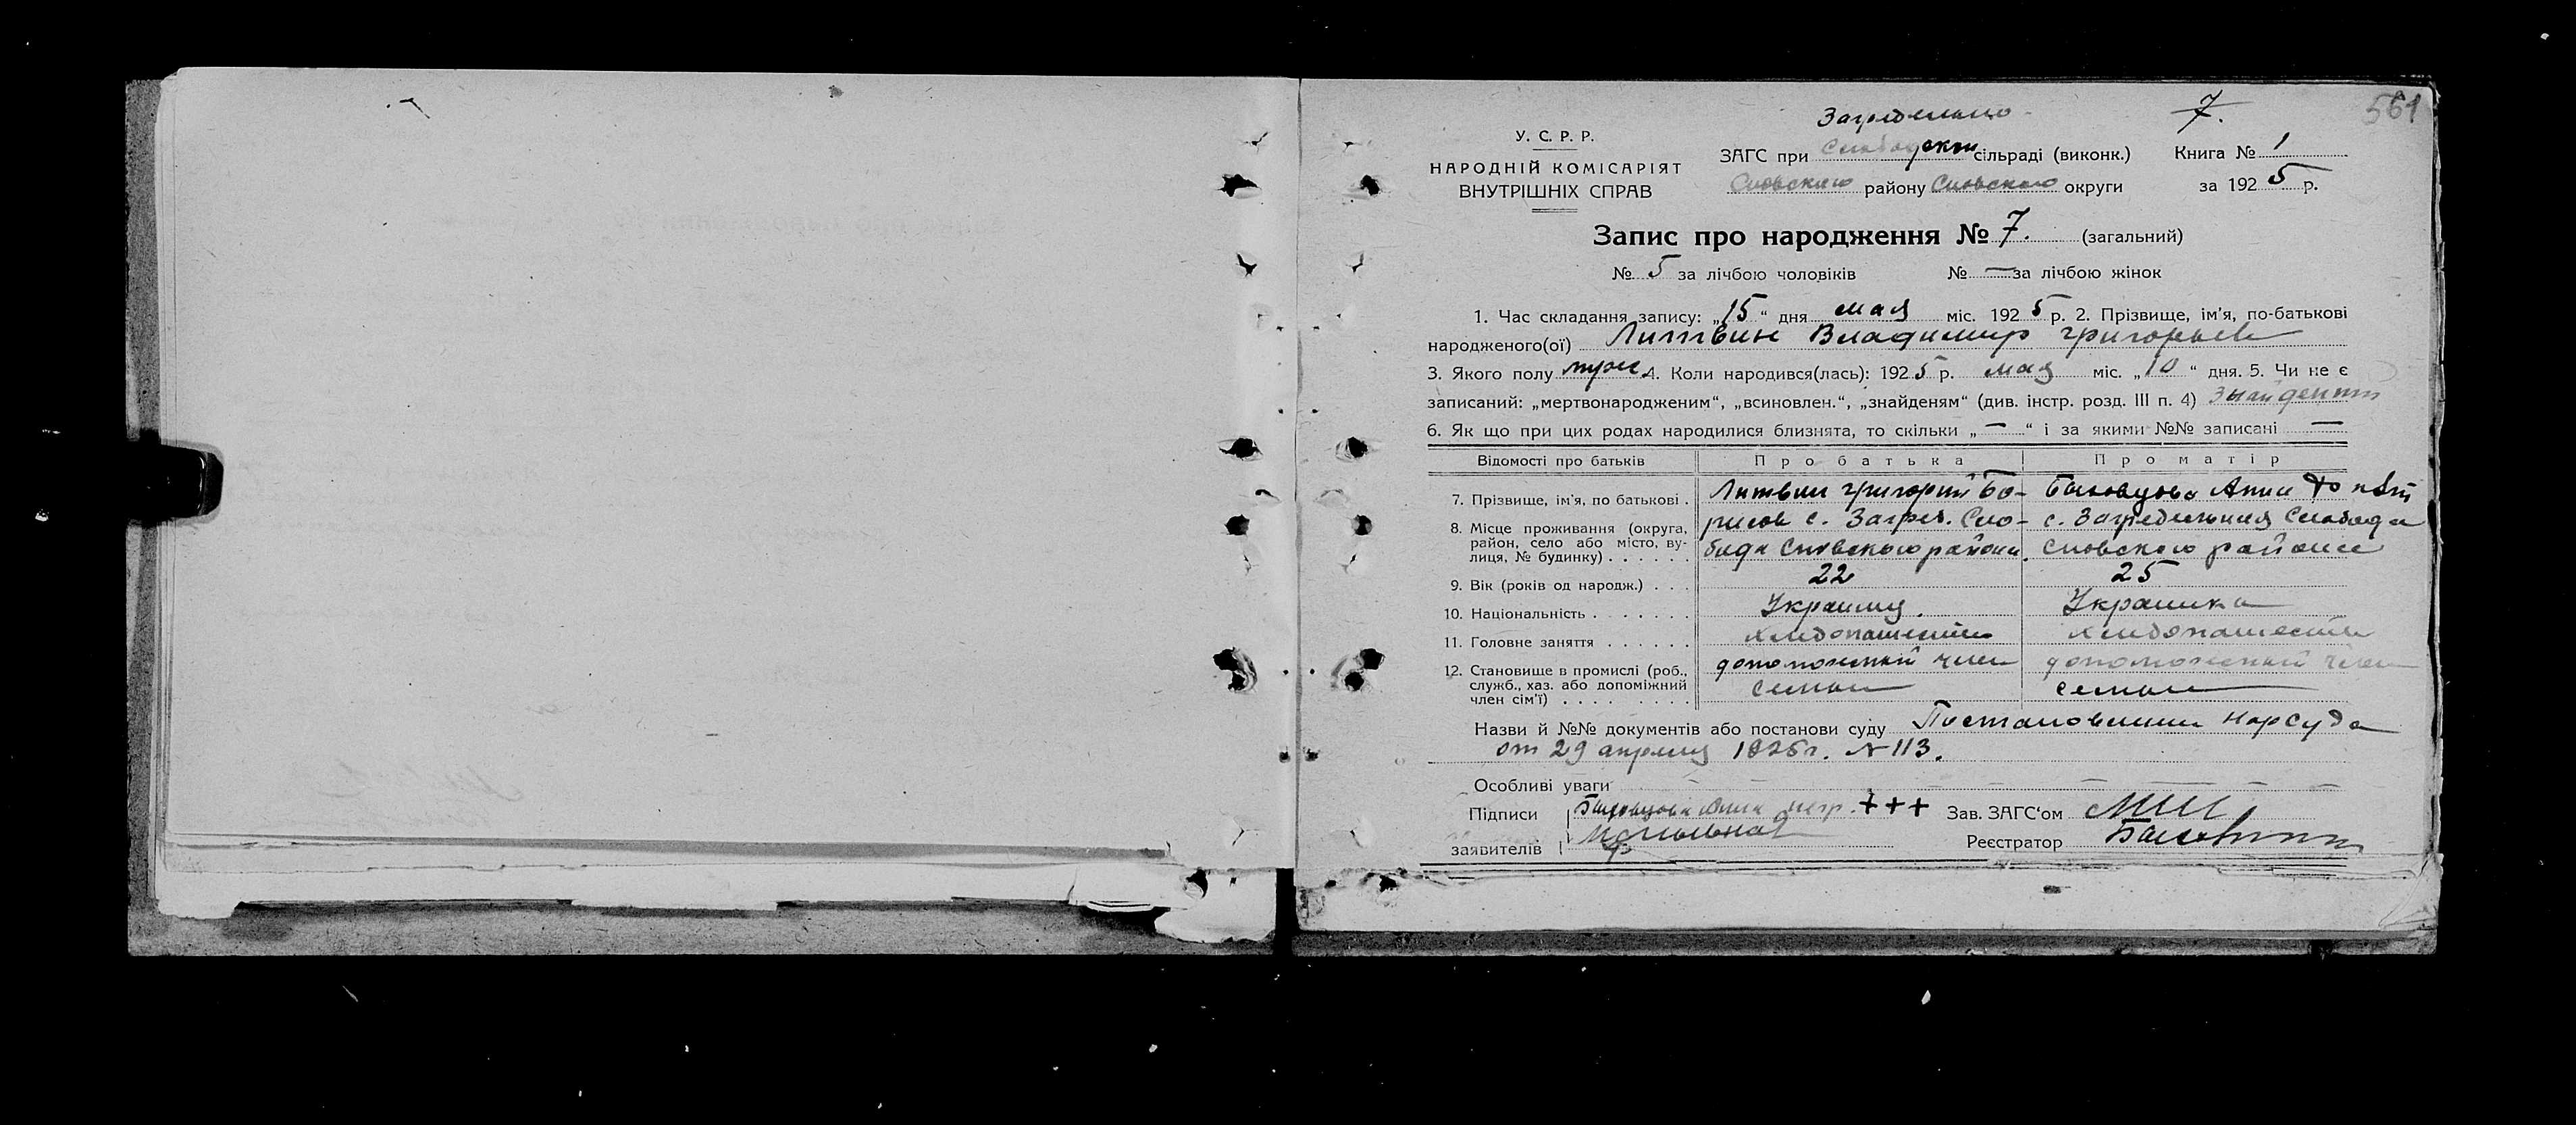 561
7.
У. С. Р. Р.
НАРОДНІЙ КОМІСАРІЯТ
ВНУТРІШНІХ СПРАВ
ЗАГС при сільраді (виконк.) Книга № 1
Сновского району Сновского округи за 1925 р.
Запис про народження № 7. (загальний)
№ 5 за лічбою чоловіків № — за лічбою жінок
1. Час складання запису: „15“ дня мая міс. 1925 р. 2. Прізвище, ім'я, по-батькові
народженого(ої) Литвин Владимир Григорьев
3. Якого полу муж 4. Коли народився(лась): 1925 р. мая міс. „10“ дня. 5. Чи не є
записаний: „мертвонародженим“, „всиновлен.“, „знайденям“ (див. інстр. розд. III п. 4)
6. Як що при цих родах народилися близнята, то скільки „—“ і за якими №№ записані —
Відомості про батьків Про батька Про матір
7. Прізвище, ім'я, по батькові . Литвин Григорий Бо-
8. Місце проживання (округа, рисов с. Загреб. Сло- с. Загребельная Слобода
район, село або місто, ву-
лиця, № будинку) . . . . . . бода Сновского района. Сновского района
9. Вік (років од народж.) . . . 22 25
10. Національність . . . . . . . Украинец. Украинка
11. Головне заняття . . . . . .
12. Становище в промислі (роб., член член
служб., хаз. або допоміжний семьи семьи
член сім'ї) . . . . . . . . .
Назви й №№ документів або постанови суду Постановление нарсуда
от 29 апреля 1925 г. № 113.
Особливі уваги
Підписи Анна негр. + + + Зав. ЗАГС'ом
заявителів Реєстратор